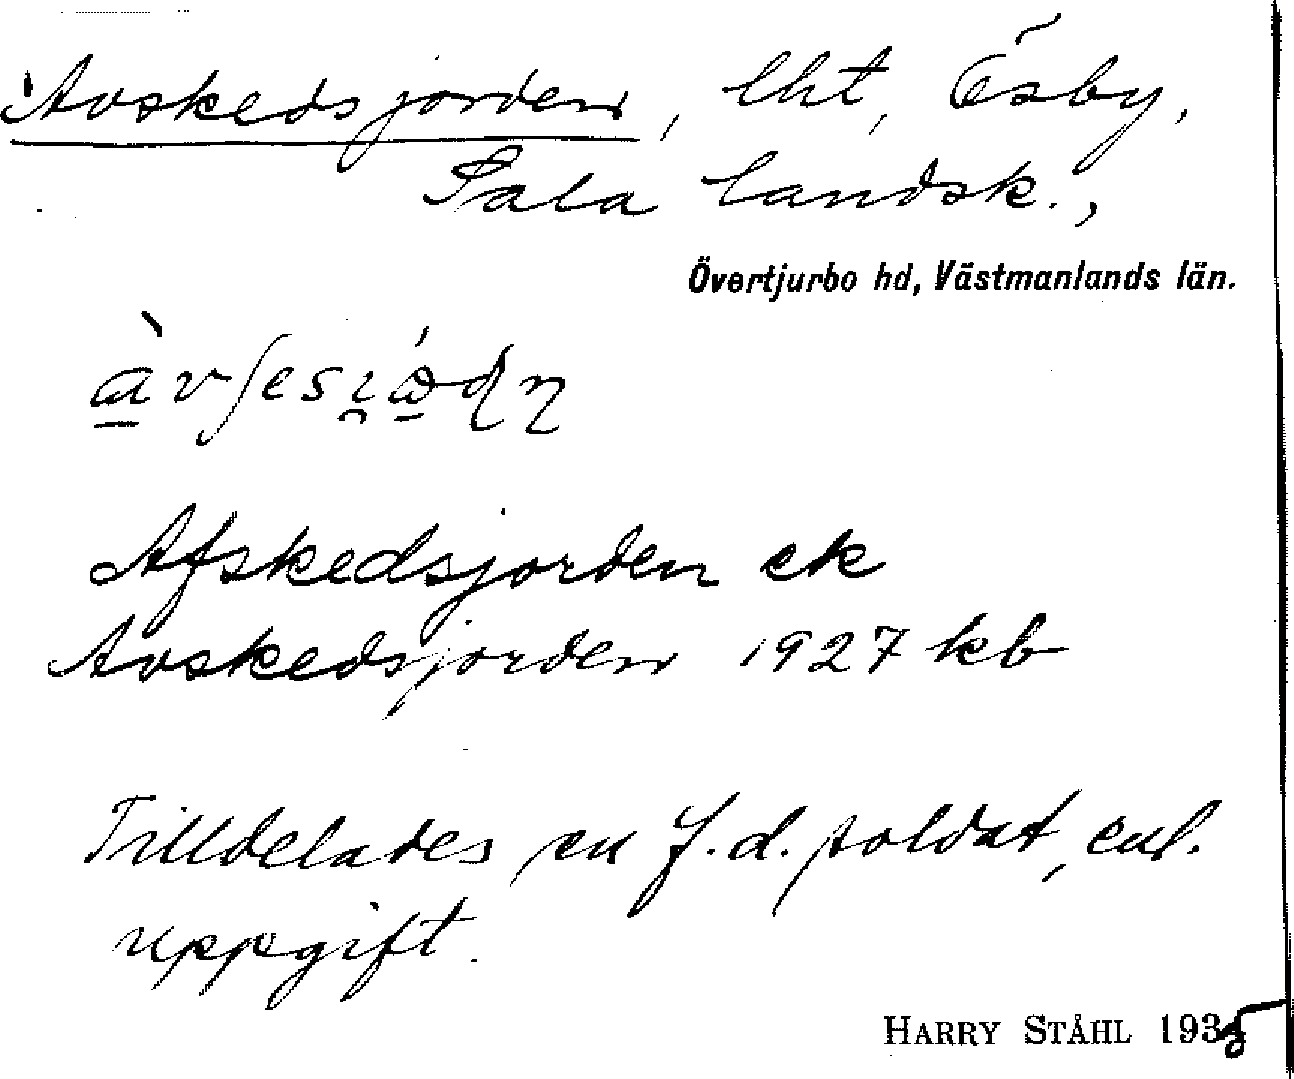 Avskedsjorden, lht, Ösby,
Sala landsk.,
Övertjurbo hd, Västmanlands län.
Afskedsjorden ek
Avskedsjorden 1927 kb
Tilldelades en f.d. soldat, enl.
uppgift.
HARRY STÅHL 1935